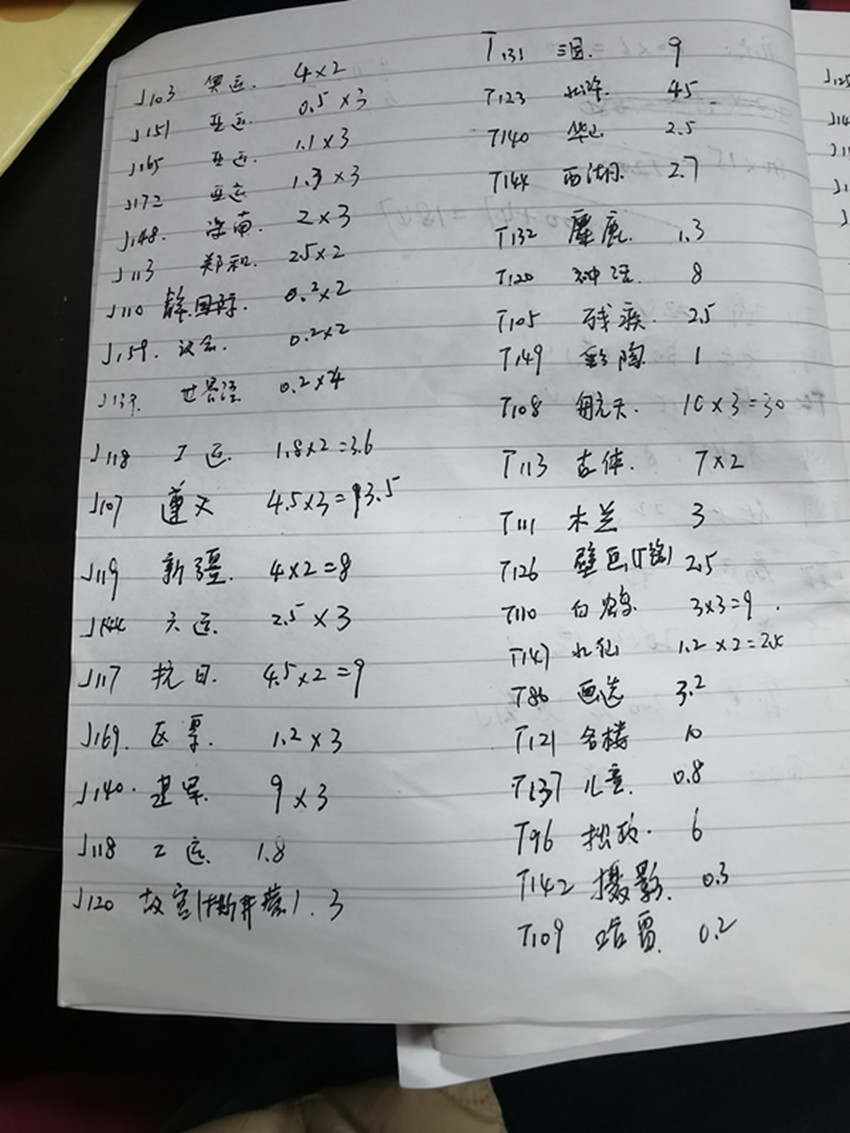 J103 奥运. 4×2
J151 亚运. 0.5×3
J165 亚运. 1.1×3
J172 亚运 1.3×3
J148. 海南. 2×3
J113 郑和. 25×2
J110 0.2×2
J159. 议会. 0.2×2
J139. 世界 0.2×4
J118 工运. 1.8×2=3.6
J107 遵义 4.5×3=13.5
J119 新疆. 4×2=8
J144 六运. 2.5×3
J117 抗日. 4.5×2=9
J169. 区票. 1.2×3
J140. 建军. 9×3
J118 工运. 1.8
J120 故宫(撕开裁). 3
T131 三国. 9
T123 水浒. 45
T140 华山 2.5
T144 西湖. 2.7
T132 麋鹿. 1.3
T120 神话. 8
T105 残疾. 2.5
T149 彩陶 1
T108 航天. 10×3=30
T113 吉体. 7×2
T111 木兰 3
T126 壁画 2.5
T110 白鹤. 3×3=9.
T147 水仙 1.2×2=2.4
T86 3.2
T121 名楼 10
T137 儿童. 0.8
T96 拙政. 6
T142 摄影. 0.3
T109 0.2
J125
J14
J1
J1
J